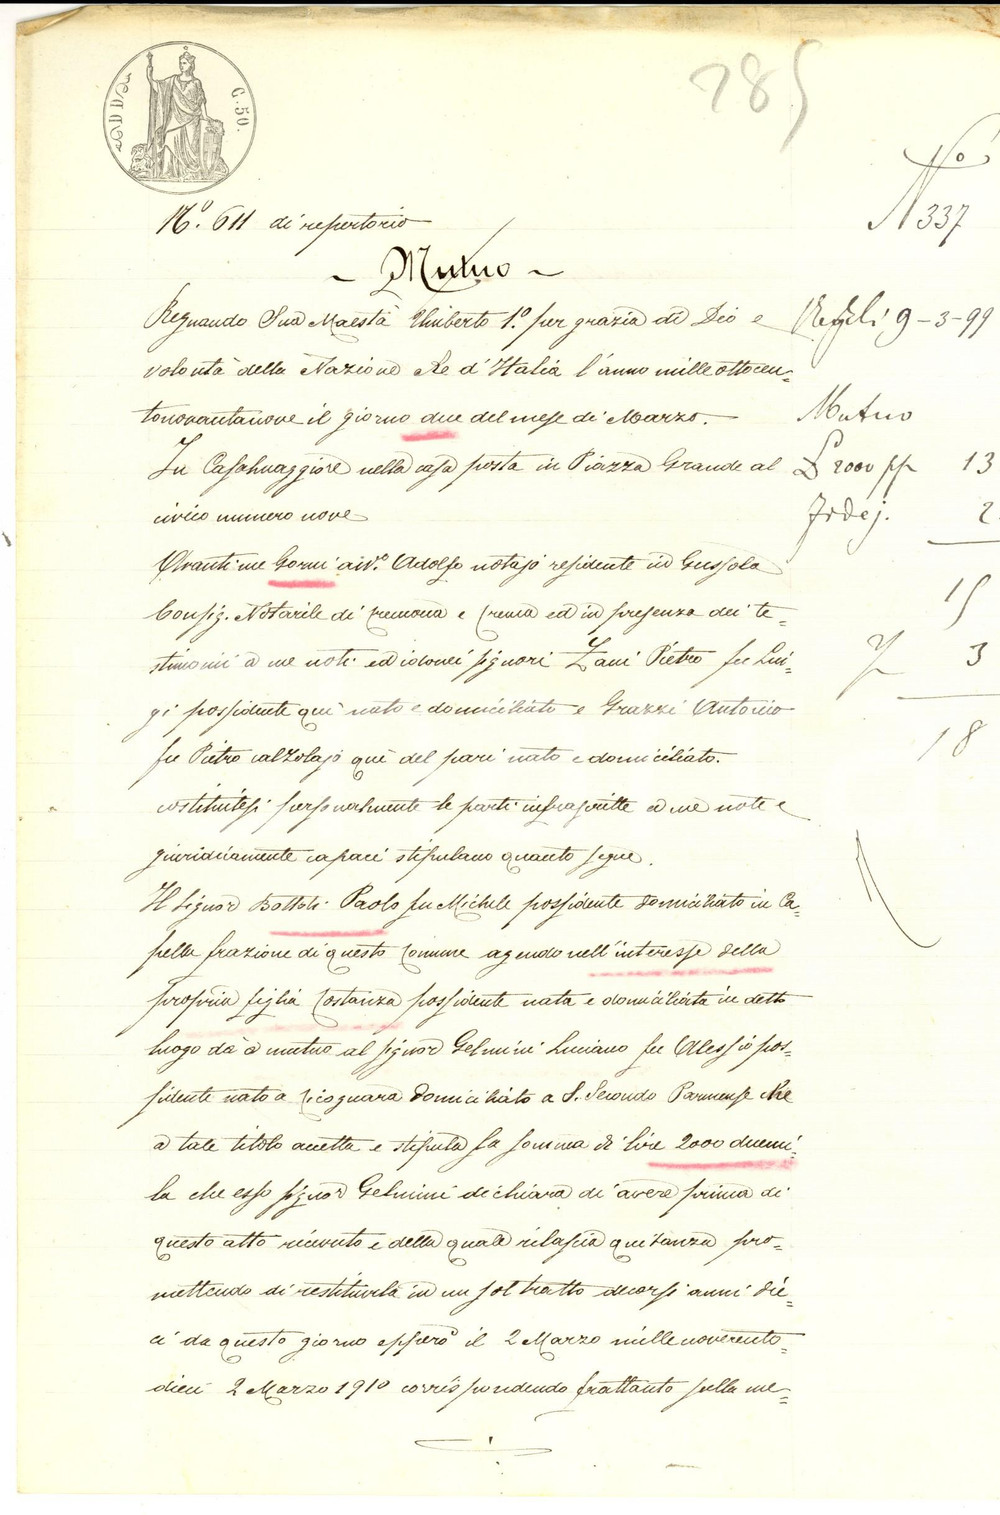 C. 50.
785
N.º 611 di repertorio
Nº 337
~ Mutuo ~
Regnando Sua Maestà Umberto 1.º per grazia di Dio e
volontà della Nazione Re d'Italia l'anno mille ottocen=
tonovantanove il giorno due del mese di Marzo.
In Casalmaggiore nella casa posta in Piazza Grande al
civico numero nove
Avanti me Gorni Adolfo notajo residente in Gussola
Consig. Notarile di Cremona e Crema ed in presenza dei te=
stimonii a me noti ed idonei signori Zani Pietro fu Lui=
gi possidente quì nato e domiciliato e Grazzi Antonio
fu Pietro calzolajo quì del pari nato e domiciliato.
costituitesi personalmente le parti infrascritte a me note e
giuridicamente capaci stipulano quanto segue.
Il Signor Bottoli Paolo fu Michele possidente domiciliato in Ca=
pella frazione di questo Comune agendo nell'interesse della
propria figlia Costanza possidente nata e domiciliata in detto
luogo dà a mutuo al signor Gelmini Luciano fu Alessio pos=
sidente nato a Cicognara domiciliato a S. Secondo Parmense che
a tale titolo accetta e stipula la somma di lire 2000 duemi=
la che esso signor Gelmini dichiara di avere prima di
questo atto ricevuto e della quale rilascia quitanza pro=
mettendo di restituirla in un sol tratto decorsi anni die=
ci da questo giorno epperò il 2 Marzo mille novecento=
dieci 2 Marzo 1910 corrispondendo frattanto sulla me=
9-3-99
Mutuo
£ 2000 13
2
15
3
18